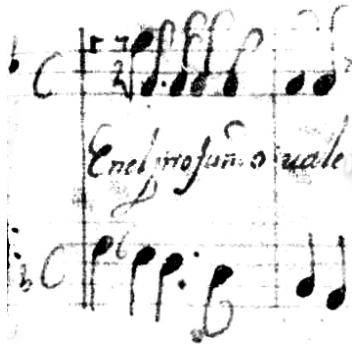 Enel profun o uale